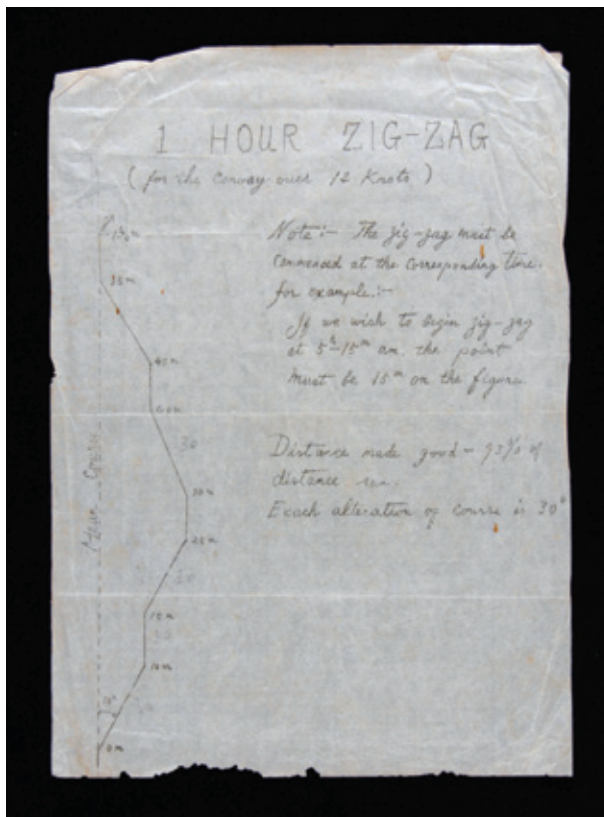 1 HOUR ZIG-ZAG
(for the Convoy over 12 Knots)
Note:- The zig-zag must be
commenced at the corresponding time.
for example:-
If we wish to begin zig-zag
at 5h-15m am. the point
must be 15m on the figure.
Distance made good - 93% of
distance run.
Each alteration of course is 30°
55m
45m
40m
30
30m
25m
15m
10m
0m